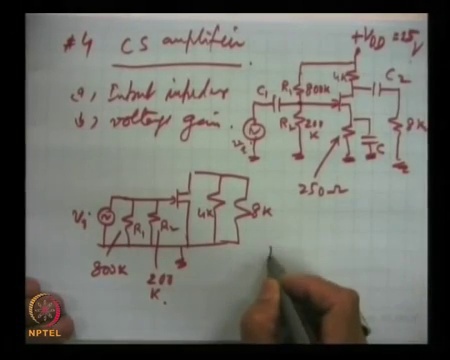 #4 CS amplifier
a, Input impedance
b, voltage gain.
+VDD = 25V
4K
C2
C1
R1 800K
R2 200
K
8K
C
250Ω
Vi
R1
R2
4K
8K
800K
200
K.
NPTEL